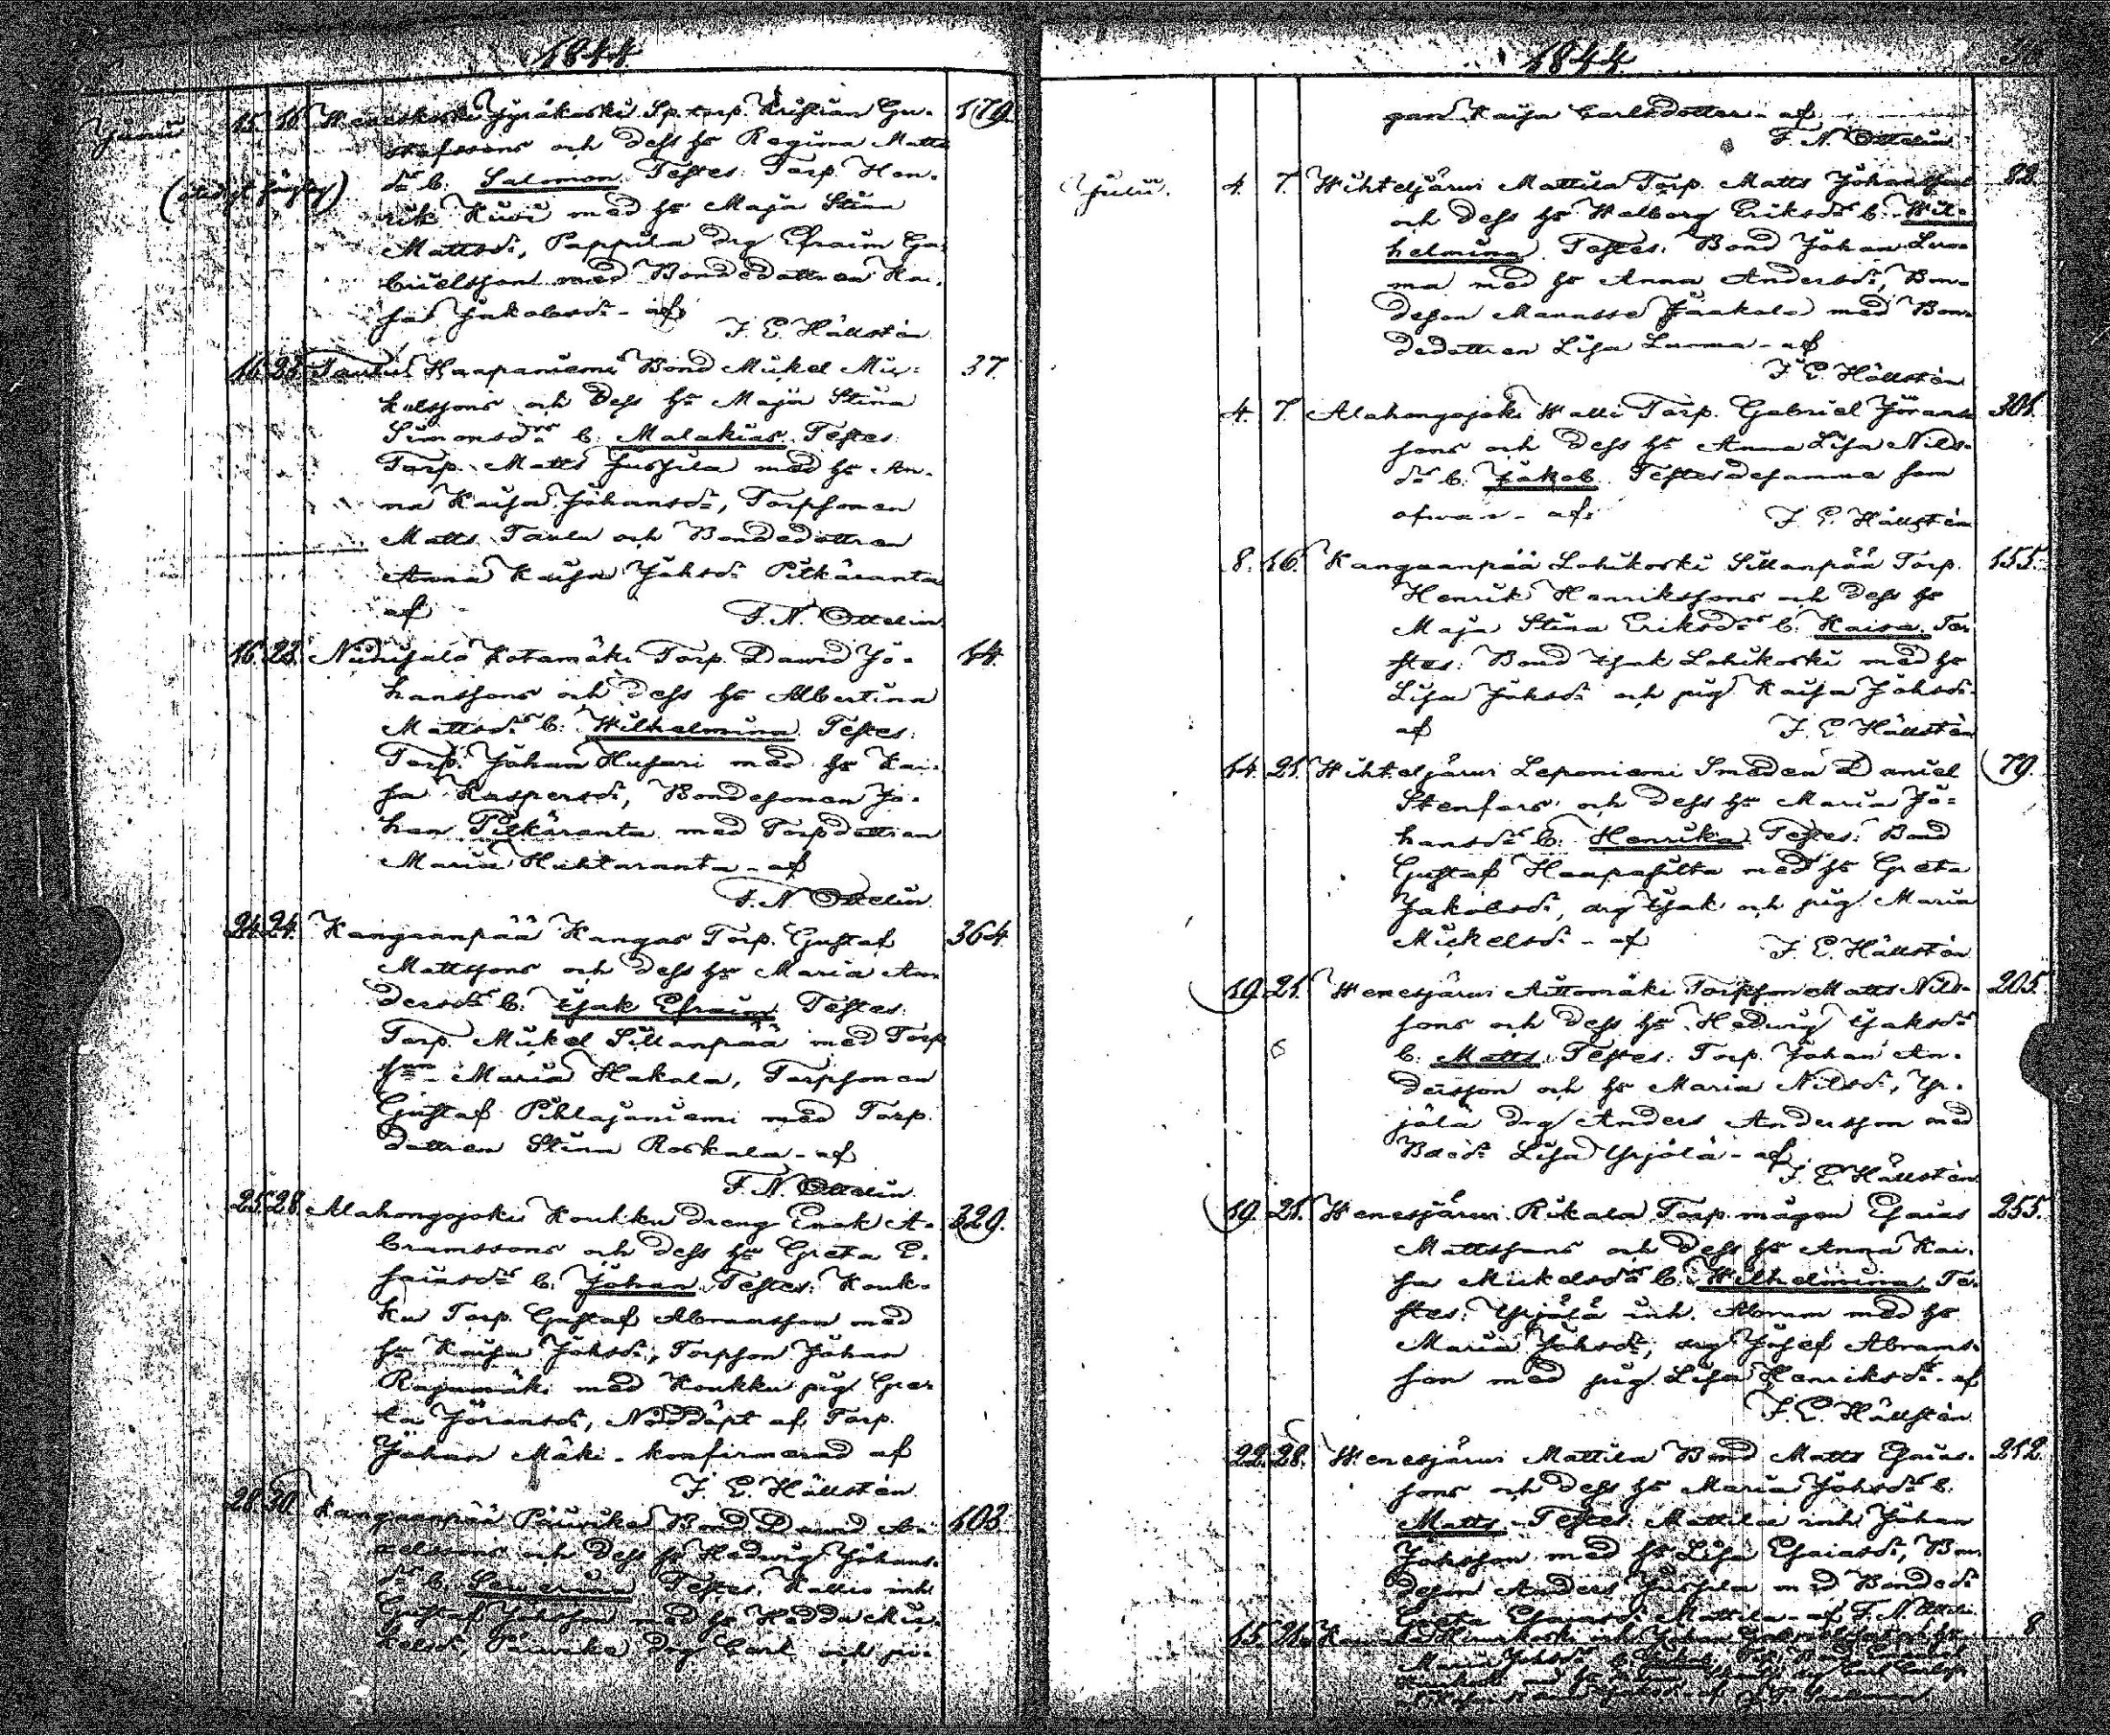 1844.
Junii 15. 16. Weneskoski Jyräkoski Sp. torp. Kristian Gu- 179.
stafssons och dess h:s Regina Matts
d:r b. Salomon. Testes: Torp. Hen-
rik Kiwi med h:s Maja Stina
Mattsd:r, Pappila drg Efraim Ga-
brielsson med Bondedottren Kai-
sa Jakobsd:r - af
F. E. Hällstén
16. 23. Kaapaniemi Bond Mickel Mic- 37.
kelssons och dess h:s Maja Stina
Simonsd:rs b. Malakias. Testes:
Torp. Matts Jussila med h:s An-
na Kaisa Johansd:r, Torpsonen
Matts Taula och Bondedottren
Anna Kaisa Johsd:r Pitkäranta
af F. N. Ottelin.
16. 23. Niinisalo Kotamäki Torp. David Jo- 14.
hanssons och dess h:s Albertina
Mattsd:rs b. Wilhelmina. Testes:
Torp. Johan Husari med h:s Kai-
sa Kaspersd:r, Bondesonen Jo-
han Pitkäranta med Torpdottren
Maria Huhtaranta - af
F. N. Ottelin.
24. 24. Kangaanpää Kangas Torp. Gustaf 364.
Mattssons och dess h:s Maria An-
dersd:rs b. Isak Efraim. Testes:
Torp. Mickel Sillanpää med Torp
h:n Maria Hakala, Torpsonen
Gustaf Pihlajaniemi med Torp.
dottren Stina Roskala - af
F. N. Ottelin.
25. 28. Alahongojoki Koukku dreng Enok A- 329.
bramssons och dess h:s Greta E-
saiasd:rs b. Johan. Testes: Kouk-
ku Torp. Gustaf Abramsson med
h:s Kaisa Johsd:r, Torpson Johan
Rajamäki med Koukku pig. Gre-
ta Göransd:r, Nöddöpt af Torp.
Johan Mäki - konfirmerad af
F. E. Hällstén.
28. 30. Kangaanpää Päiwike Bond David A- 103.
xelssons och dess h:s Hedwig Johans-
d:rs b. Testes: Kallio inh.
Gustaf Johsson med h:s Hedda Mic-
kelsd:r, Päiwike drg Carl och pi-
1844.
gan Kaisa Carlsdotter - af
F. N. Ottelin
Julii. 4. 7. Wihteljärwi Mattila Torp. Matts Johanssons 82.
och dess h:s Walborg Eriksd:rs b. Wil-
helmina. Testes: Bond Johan Lum-
ma med h:s Anna Andersd:r, Bon-
deson Manasse Jaakola med Bon-
dedottren Lisa Lumma - af
F. E. Hällstén
4. 7. Alahongojoki Walli Torp. Gabriel Görans- 301.
sons och dess h:s Anna Lisa Nils-
d:rs b. Jakob. Testes desamma som
ofwan - af: F. E. Hällstén
8. 16. Kangaanpää Lohikoski Sillanpää Torp. 155.
Henrik Henrikssons och dess h:s
Maja Stina Eriksd:rs b. Kaisa. Te-
stes: Bond Isak Lohikoski med h:s
Lisa Johsd:r och pig. Kaisa Johsd:r
af F. E. Hällstén
14. 21. Wihteljärwi Leponiemi Smeden Daniel 79.
Stenfors och dess h:s Maria Jo-
hansd:rs b. Henrika. Testes: Bond
Gustaf Haapasilta med h:s Greta
Jakobsd:r, drg Isak och pig. Maria
Mickelsd:r - af F. E. Hällstén
19. 21. Wenesjärwi Aittomäki Torpson Matts Nils- 205.
sons och dess h:s Hedwig Isaksd:rs
b. Matts. Testes: Torp. Johan An-
dersson och h:s Maria Nilsd:r, Yr-
jälä drg Anders Andersson med
Lisa Yrjälä - af
F. E. Hällstén
19. 21. Wenesjärwi Rikala Torp. mågen Esaias 255.
Mattssons och dess h:s Anna Kai-
sa Mickelsd:rs b. Wilhelmina. Te-
stes: Yrjälä inh. Abram med h:s
Maria Johsd:r, drg Josef Abrams-
son med pig. Lisa Henriksd:r - af
F. E. Hällstén.
22. 28. Wenesjärwi Mattila Bond Matts Esaias- 212.
sons och dess h:s Maria Johsd:rs b.
Matts. Testes: Mattila inh. Johan
Johsson med h:s Lisa Esaiasd:r, Bon-
deson Anders Jussila med Bonded:r
Greta Esaiasd:r Mattila - af F. N. Ottelin
15. 8